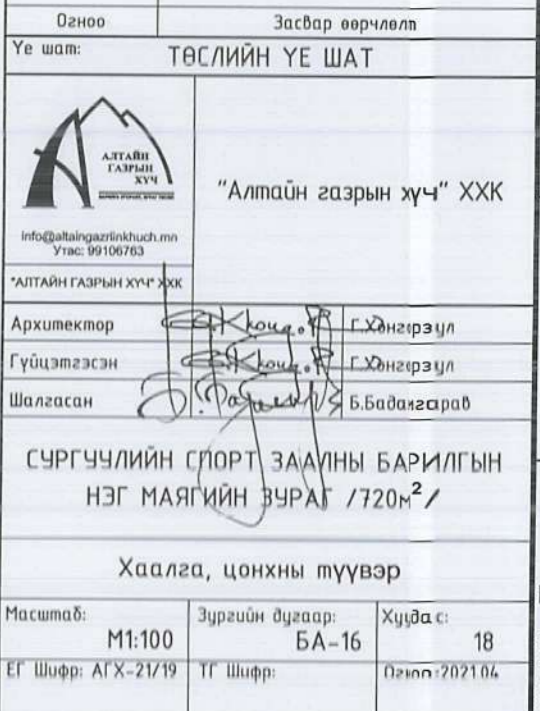 Огноо Засвар өөрчлөлт
Үе шат: ТӨСЛИЙН ҮЕ ШАТ
АЛТАЙН
ГАЗРЫН
ХҮЧ
"Алтайн газрын хүч" ХХК
info@altaingazriinkhuch.mn
Утас: 99106763
"АЛТАЙН ГАЗРЫН ХҮЧ" ХХК
Архитектор Г.Хонгорзул
Гүйцэтгэсэн Г.Хонгорзул
Шалгасан Б.Бадамгарав
СУРГУУЛИЙН СПОРТ ЗААЛНЫ БАРИЛГЫН
НЭГ МАЯГИЙН ЗУРАГ /720м²/
Хаалга, цонхны түүвэр
Масштаб: Зургийн дугаар: Хуудас:
М1:100 БА-16 18
ЕГ Шифр: АГХ-21/19 ТГ Шифр: Огноо:2021.04